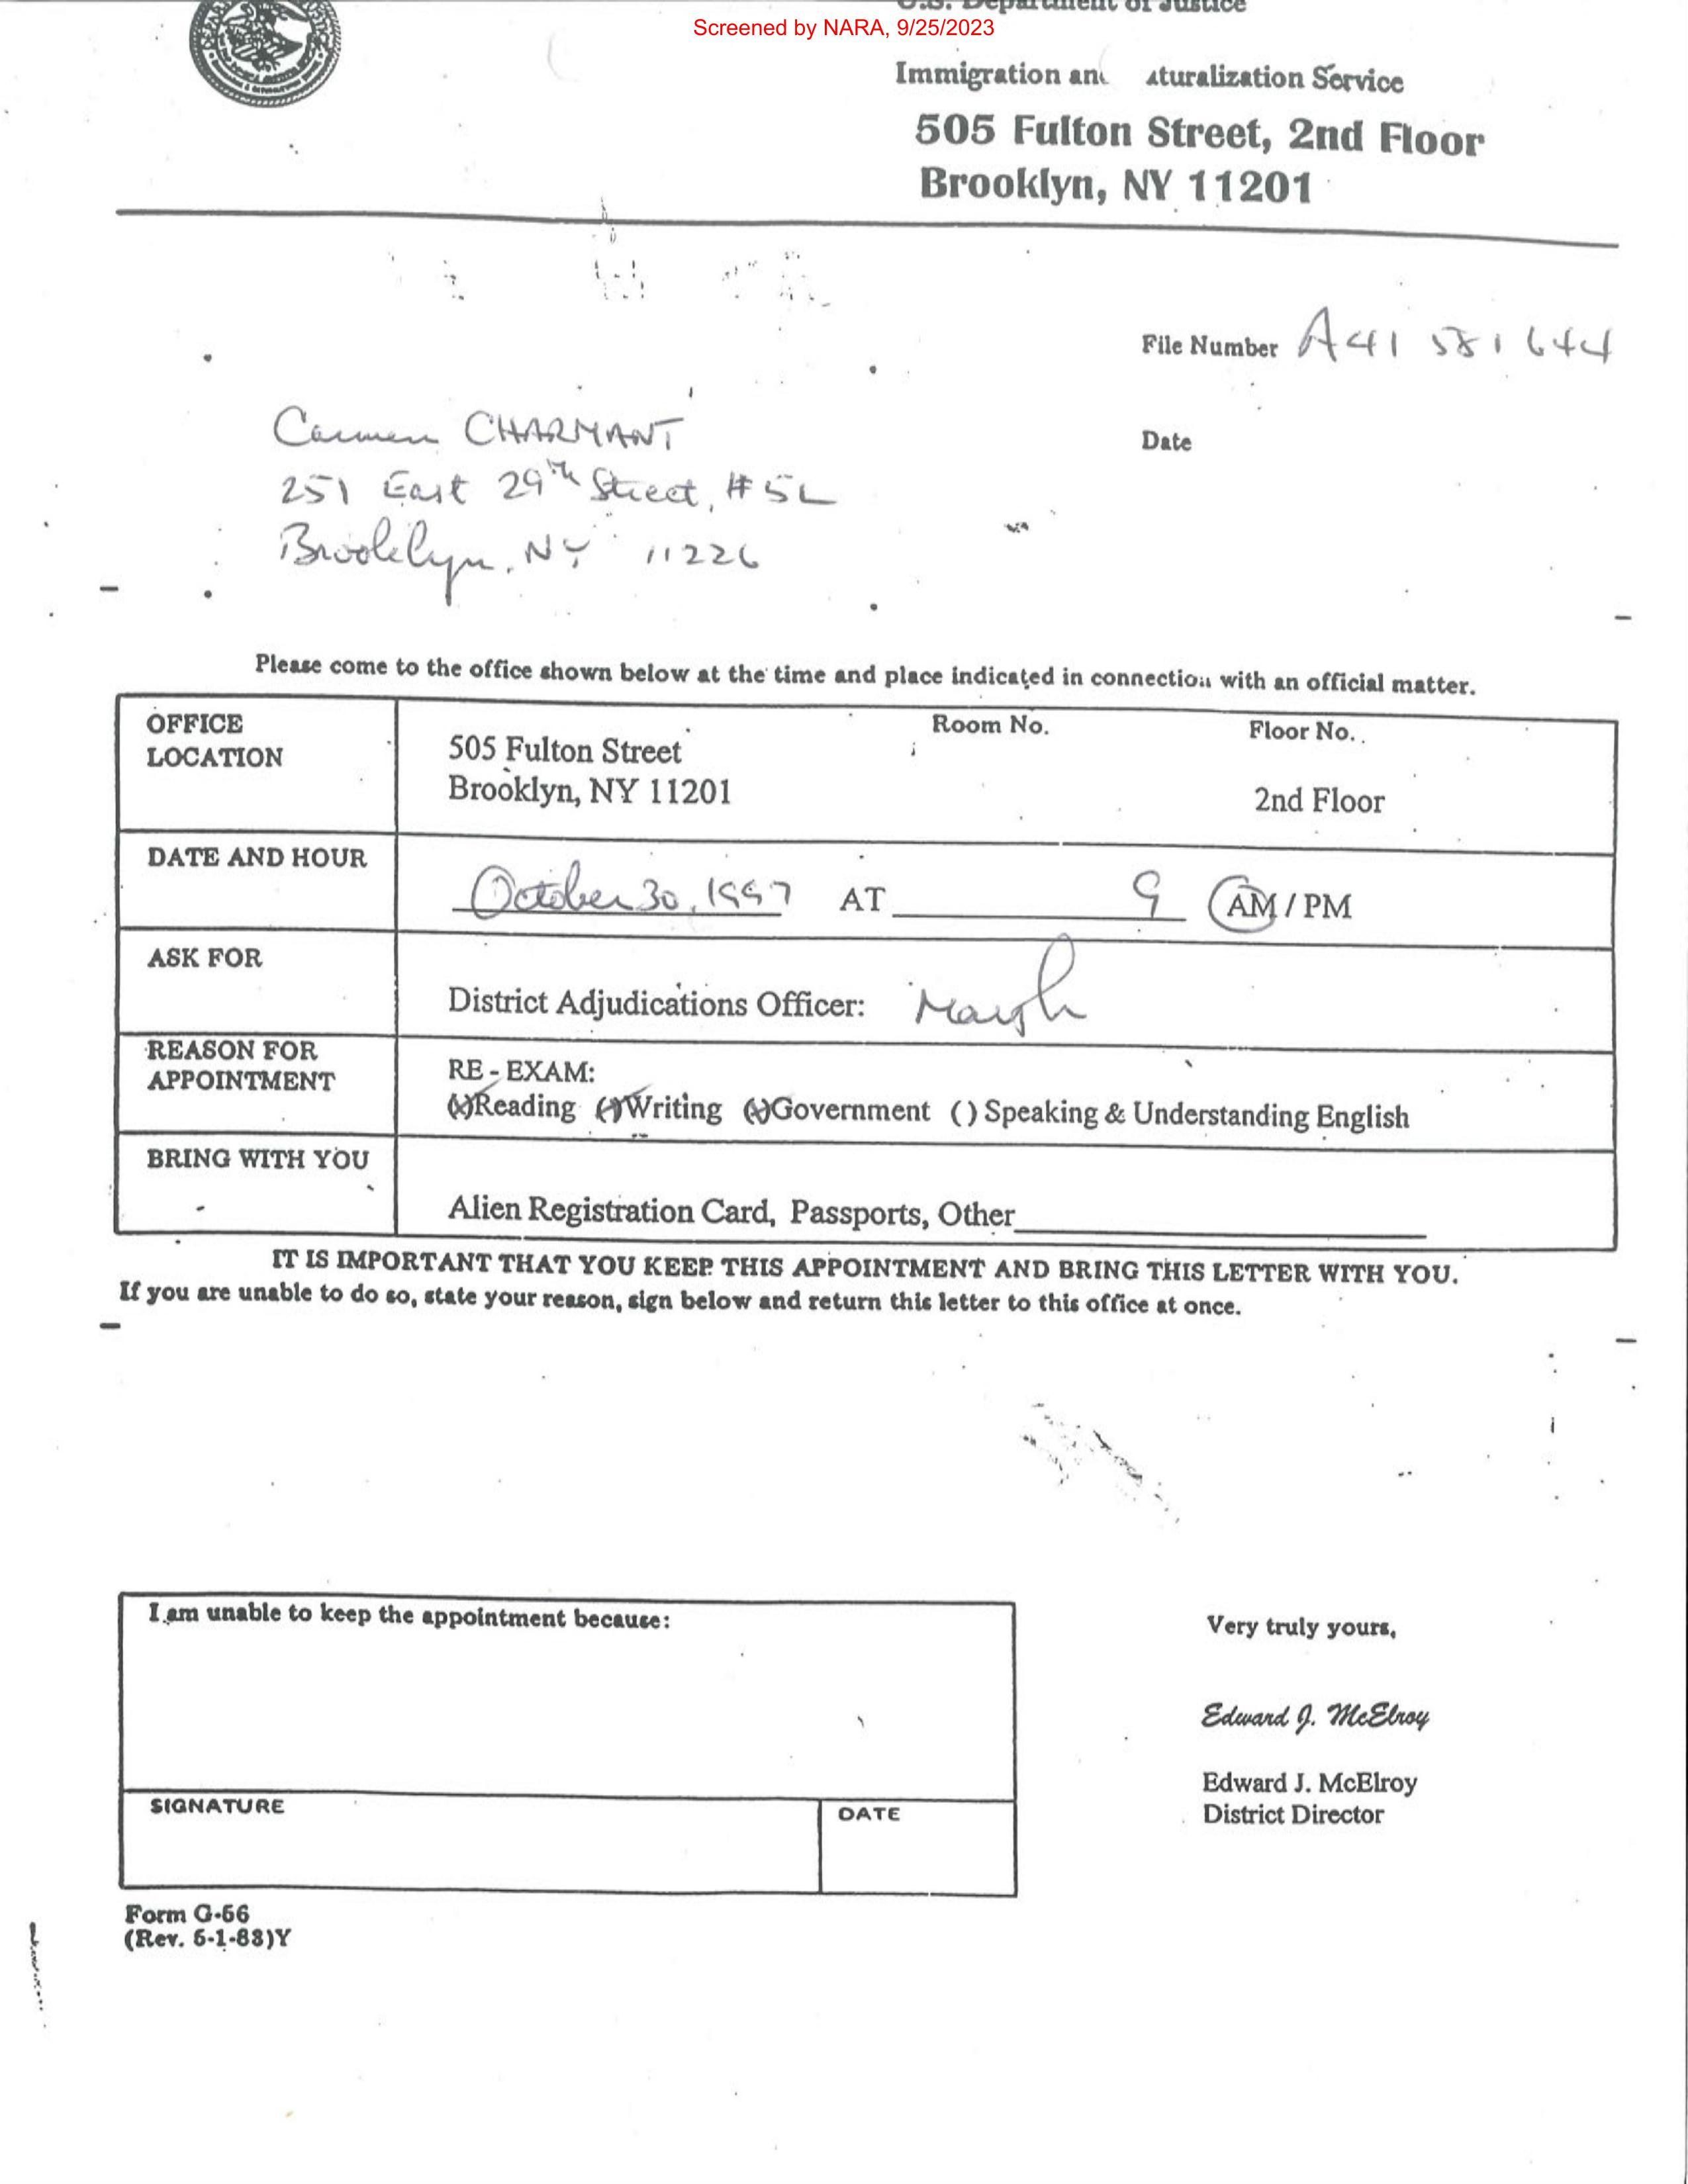 U.S. Department of Justice
Screened by NARA, 9/25/2023
Immigration an aturalization Service
505 Fulton Street, 2nd Floor
Brooklyn, NY 11201
File Number A41 581 644
Carmen CHARMANT
Date
251 East 29th Street, #5L
Brooklyn, NY 11226
Please come to the office shown below at the time and place indicated in connection with an official matter.
OFFICE LOCATION
505 Fulton Street
Brooklyn, NY 11201
Room No.
Floor No.
2nd Floor
DATE AND HOUR
October 30, 1997 AT 9 AM / PM
ASK FOR
District Adjudications Officer:
REASON FOR APPOINTMENT
RE - EXAM:
(x)Reading (x)Writing (x)Government () Speaking & Understanding English
BRING WITH YOU
Alien Registration Card, Passports, Other
IT IS IMPORTANT THAT YOU KEEP THIS APPOINTMENT AND BRING THIS LETTER WITH YOU.
If you are unable to do so, state your reason, sign below and return this letter to this office at once.
I am unable to keep the appointment because:
Very truly yours,
Edward J. McElroy
Edward J. McElroy
District Director
SIGNATURE
DATE
Form G-56
(Rev. 5-1-83)Y